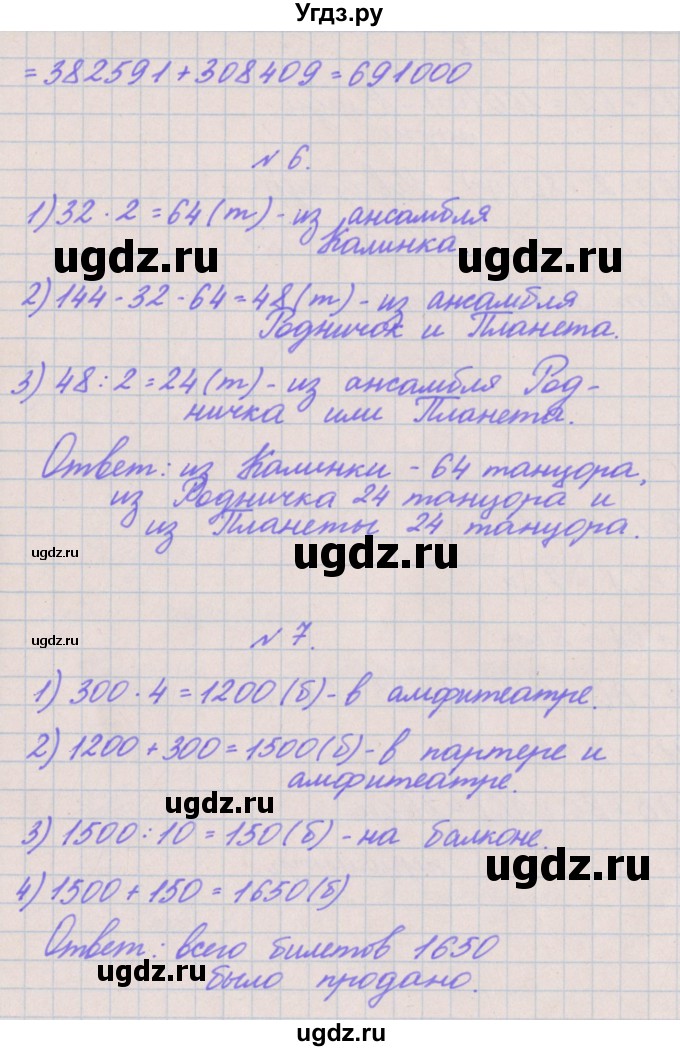 Угдз.ру
= 382591 + 308409 = 691000
№ 6.
1) 32 · 2 = 64 (т) - из ансамбля
Калинка
ugdz.ru ugdz.ru
2) 144 - 32 - 64 = 48 (т) - из ансамбля
Родничок и Планета.
3) 48 : 2 = 24 (т) - из ансамбля Род-
ничка или Планеты.
Ответ: из Калинки - 64 танцора,
из Родничка 24 танцора и
из Планеты 24 танцора.
ugdz.ru ugdz.ru
№ 7.
ugdz.ru
1) 300 · 4 = 1200 (б) - в амфитеатре.
2) 1200 + 300 = 1500 (б) - в партере и
амфитеатре.
ugdz.ru
3) 1500 : 10 = 150 (б) - на балконе.
ugdz.ru
4) 1500 + 150 = 1650 (б)
Ответ: всего билетов 1650
было продано.
ugdz.ru
ugdz.ru